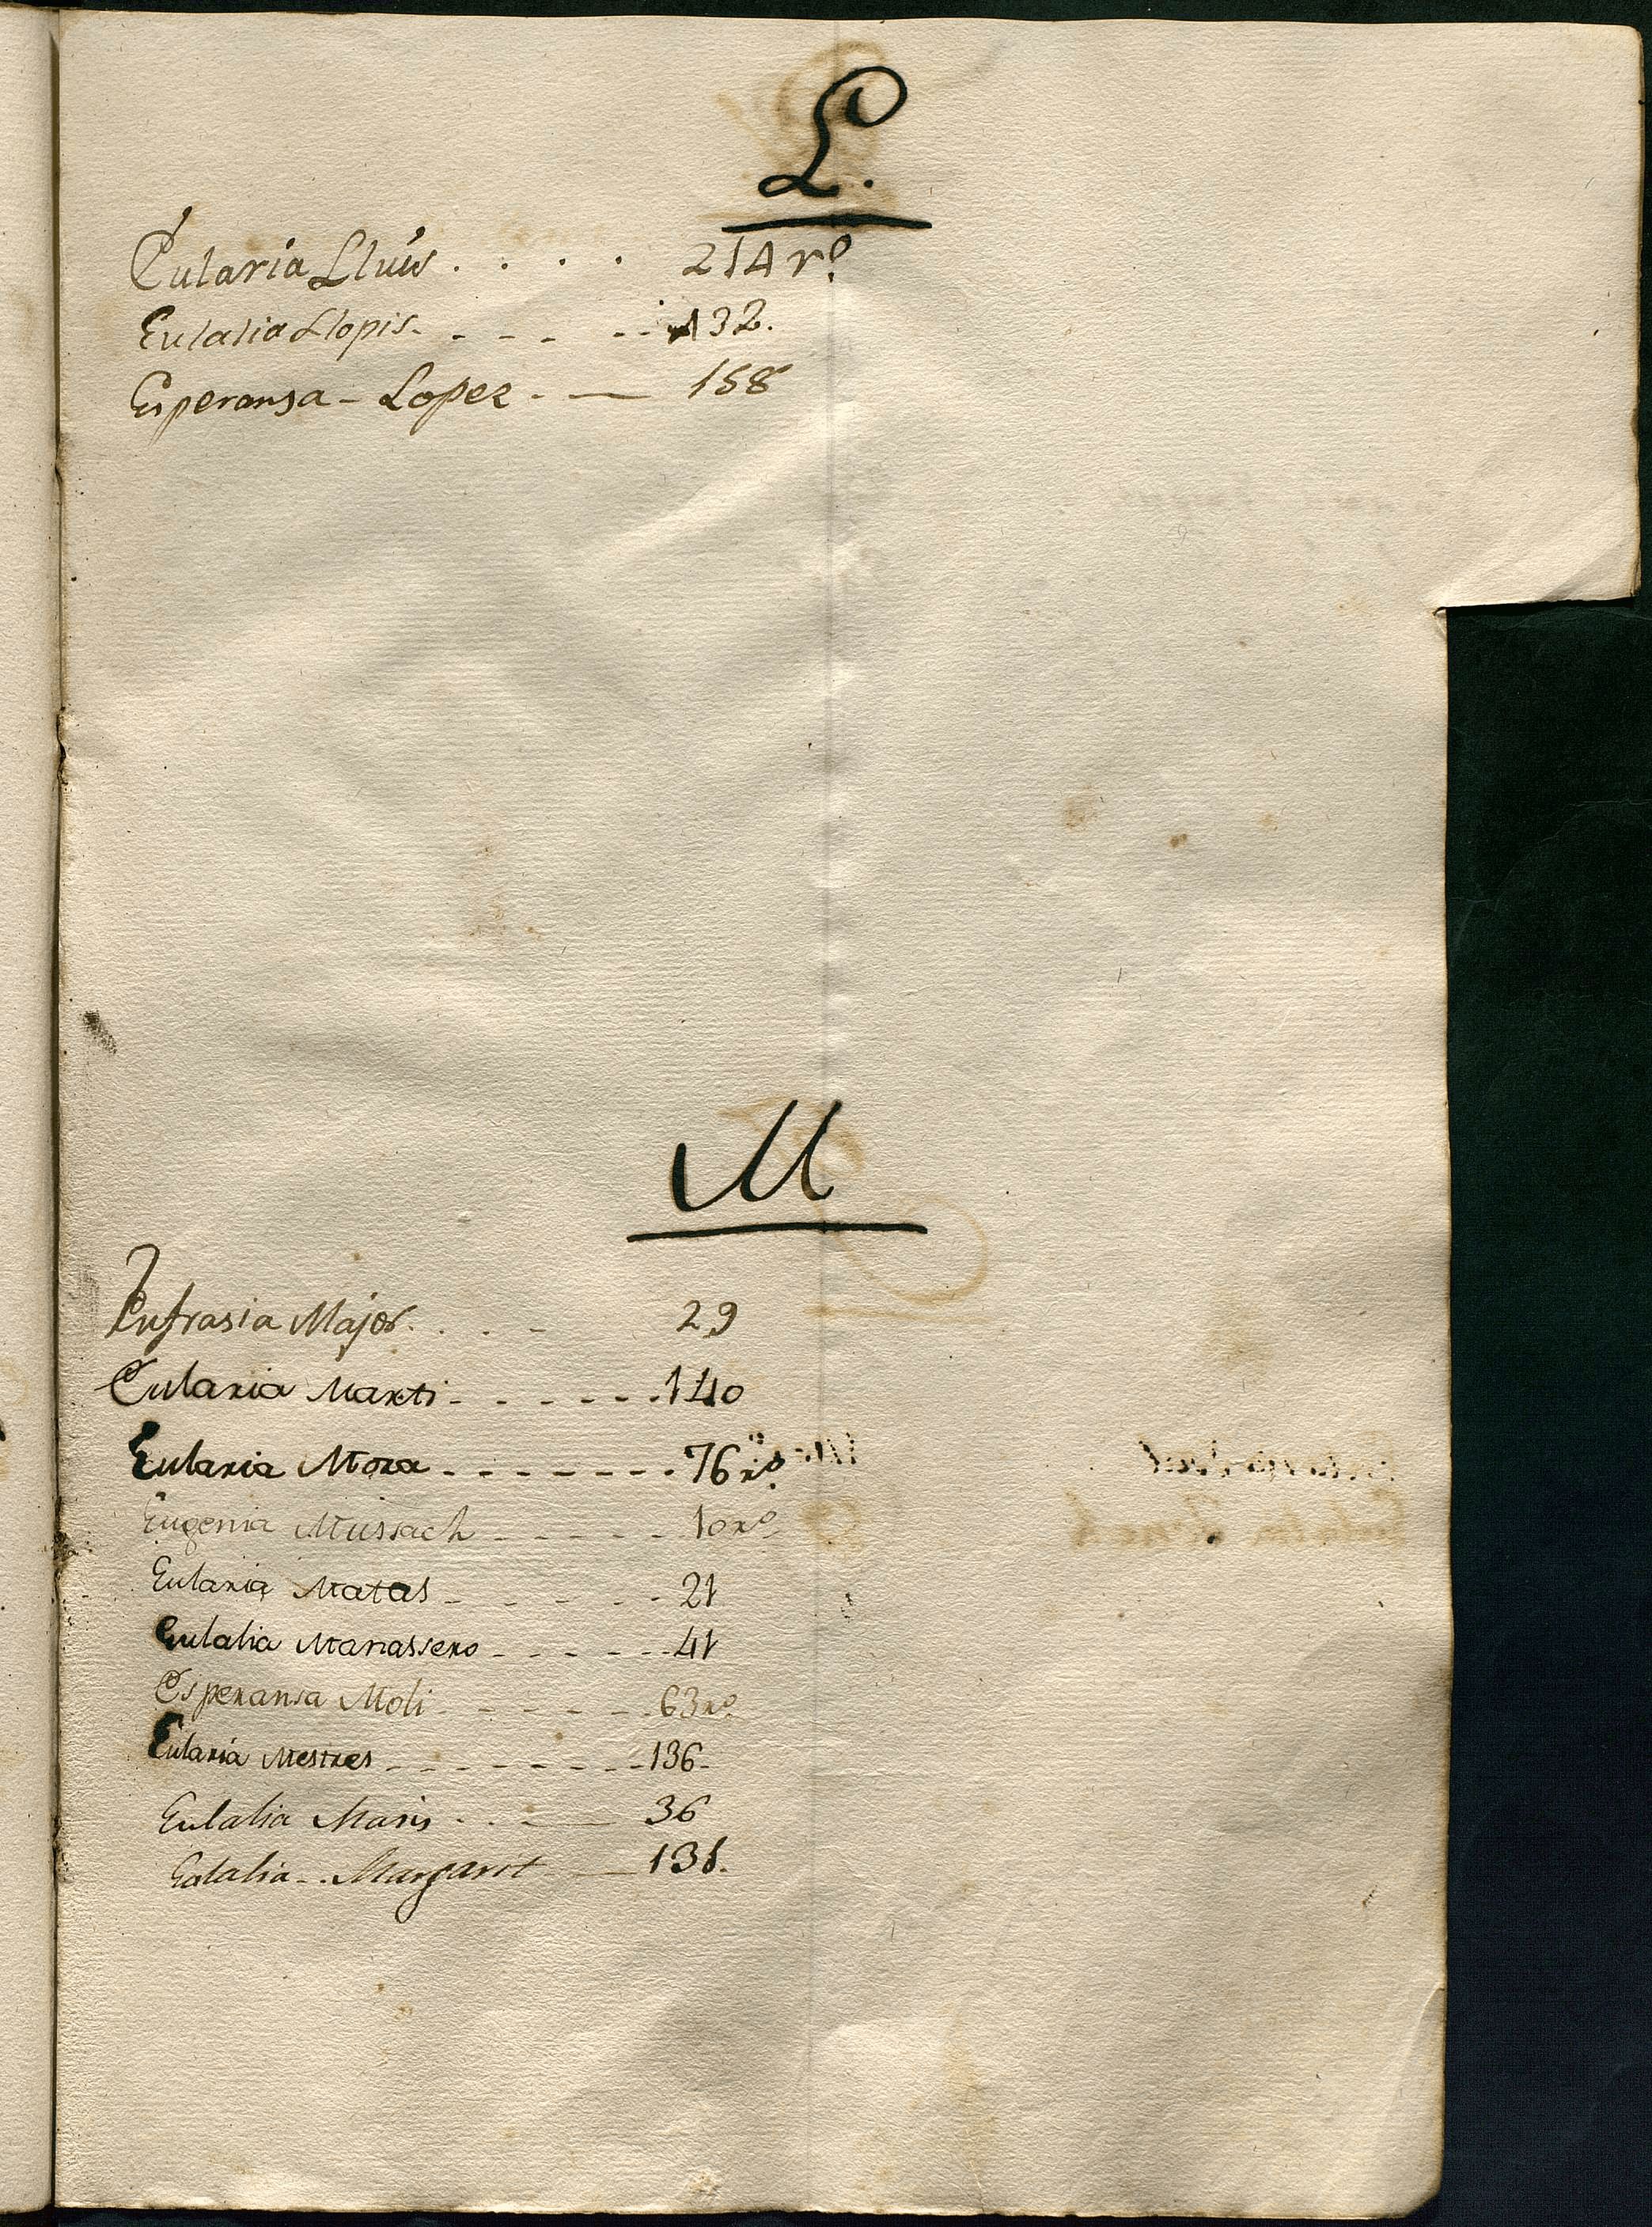 L.
Eularia Lluis . . . . 214 rº
Eulalia Llopis - - - - - 132.
Esperansa - Lopez - — 158
M
Eufrasia Major. . . - 29
Eularia Marti - - - - - - 140
Eularia Mora - - - - - - - 76 rº.
Eugenia Mussach - - - - - 10 rº
Eularia Matas - - - - - - 21
Eulalia Manassero - - - - - - 41
Esperansa Moli - - - - - - 63 rº
Eularia Mestres - - - - - - - - 136-
Eulalia Maris - - - — 36
Eulalia - . Margarit — 131.